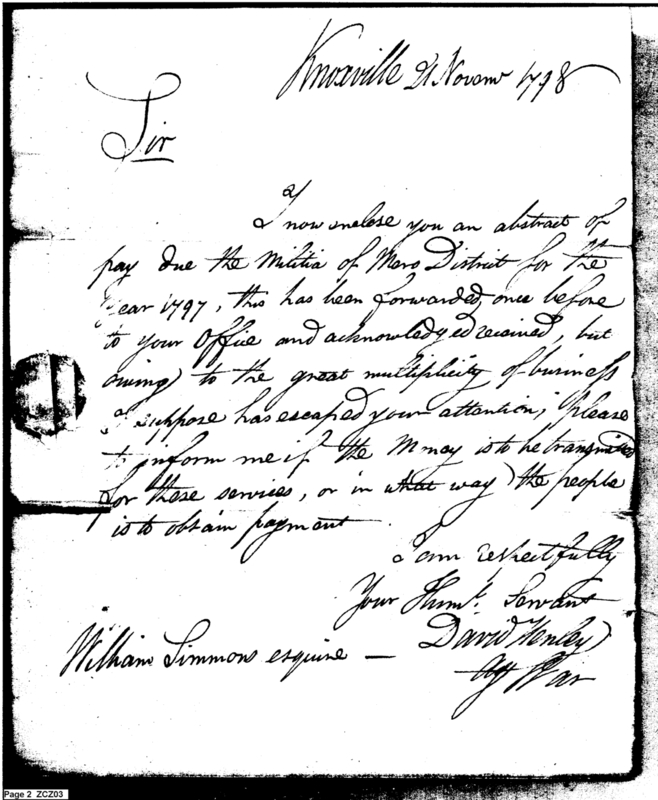 Knoxville 21 Novemr 1798
Sir
I now inclose you an abstract of
pay due the Militia of Mero District for the
Year 1797, this has been forwarded once before
to your Office and acknowledged received, but
owing to the great multiplicity of business
I suppose has escaped your attention; Please
to inform me if the Money is to be transmitted
for these services, or in what way the people
is to obtain payment.
I am respectfully
Your Humt. Servant
David Henley
Agt War
William Simmons esquire —
Page 2 ZCZ03